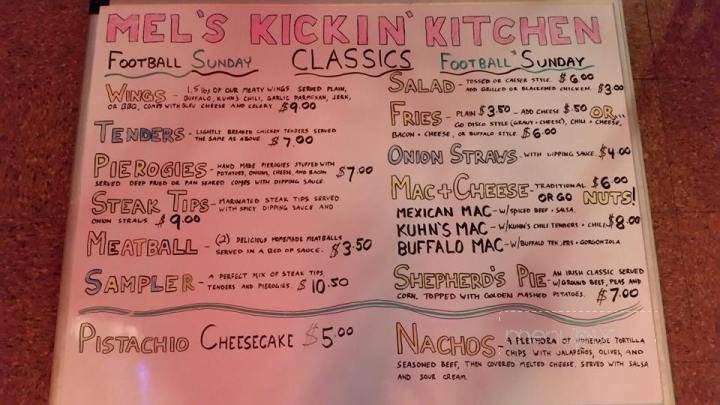 MEL'S KICKIN' KITCHEN
FOOTBALL SUNDAY CLASSICS FOOTBALL SUNDAY
WINGS - 1.5 lbs OF OUR MEATY WINGS. SERVED PLAIN,
BUFFALO, KUHN'S CHILI, GARLIC PARMESAN, JERK,
OR BBQ. COMES WITH BLEU CHEESE AND CELERY $9.00
TENDERS - LIGHTLY BREADED CHICKEN TENDERS SERVED
THE SAME AS ABOVE $7.00
PIEROGIES - HAND MADE PIEROGIES STUFFED WITH
POTATOES, ONIONS, CHEESE, AND BACON $7.00
SERVED DEEP FRIED OR PAN SEARED COMES WITH DIPPING SAUCE.
STEAK TIPS - MARINATED STEAK TIPS SERVED
WITH SPICY DIPPING SAUCE AND
ONION STRAWS. $9.00
MEATBALL - (2) DELICIOUS HOMEMADE MEATBALLS
SERVED IN A BED OF SAUCE. $3.50
SAMPLER - A PERFECT MIX OF STEAK TIPS,
TENDERS AND PIEROGIES. $10.50
PISTACHIO CHEESECAKE $5.00
SALAD - TOSSED OR CAESER STYLE. $6.00
ADD GRILLED OR BLACKENED CHICKEN $3.00
FRIES - PLAIN $3.50 - ADD CHEESE $.50 OR...
GO DISCO STYLE (GRAVY + CHEESE), CHILI + CHEESE,
BACON + CHEESE, OR BUFFALO STYLE $6.00
ONION STRAWS - WITH DIPPING SAUCE $4.00
MAC + CHEESE - TRADITIONAL $6.00
OR GO NUTS!
MEXICAN MAC - W/SPICED BEEF + SALSA
KUHN'S MAC - W/KUHN'S CHILI TENDERS + CHILI $8.00
BUFFALO MAC - W/BUFFALO + GORGONZOLA
SHEPHERD'S PIE - AN IRISH CLASSIC SERVED
W/GROUND BEEF, PEAS AND
CORN, TOPPED WITH GOLDEN MASHED POTATOES. $7.00
NACHOS - A PLETHORA OF HOMEMADE TORTILLA
CHIPS WITH JALAPEÑOS, OLIVES, AND
SEASONED BEEF, THEN COVERED MELTED CHEESE. SERVED WITH SALSA
AND SOUR CREAM.